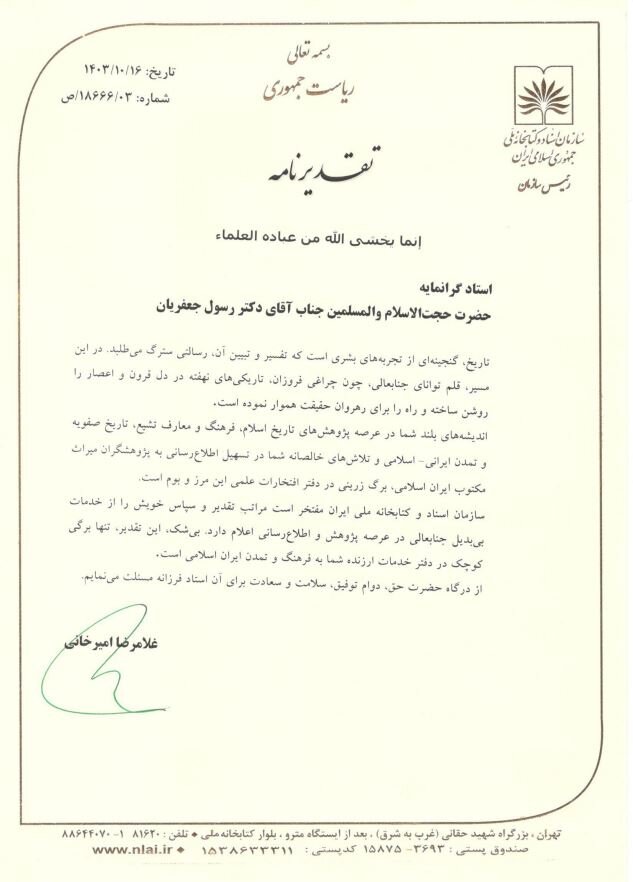 بسمه تعالی
ریاست جمهوری
تاریخ: ۱۴۰۳/۱۰/۱۶
شماره: ۱۸۶۶۶/۰۳/ص
سازمان اسناد و کتابخانه ملی
جمهوری اسلامی ایران
رئیس سازمان
تقدیرنامه
إنما یخشی الله من عباده العلماء
استاد گرانمایه
حضرت حجت‌الاسلام والمسلمین جناب آقای دکتر رسول جعفریان
تاریخ، گنجینه‌ای از تجربه‌های بشری است که تفسیر و تبیین آن، رسالتی سترگ می‌طلبد. در این
مسیر، قلم توانای جنابعالی، چون چراغی فروزان، تاریکی‌های نهفته در دل قرون و اعصار را
روشن ساخته و راه را برای رهروان حقیقت هموار نموده است.
اندیشه‌های بلند شما در عرصه پژوهش‌های تاریخ اسلام، فرهنگ و معارف تشیع، تاریخ صفویه
و تمدن ایرانی- اسلامی و تلاش‌های خالصانه شما در تسهیل اطلاع‌رسانی به پژوهشگران میراث
مکتوب ایران اسلامی، برگ زرینی در دفتر افتخارات علمی این مرز و بوم است.
سازمان اسناد و کتابخانه ملی ایران مفتخر است مراتب تقدیر و سپاس خویش را از خدمات
بی‌بدیل جنابعالی در عرصه پژوهش و اطلاع‌رسانی اعلام دارد. بی‌شک، این تقدیر، تنها برگی
کوچک در دفتر خدمات ارزنده شما به فرهنگ و تمدن ایران اسلامی است.
از درگاه حضرت حق، دوام توفیق، سلامت و سعادت برای آن استاد فرزانه مسئلت می‌نمایم.
غلامرضا امیرخانی
تهران، بزرگراه شهید حقانی (غرب به شرق)، بعد از ایستگاه مترو، بلوار کتابخانه ملی ♦ تلفن: ۸۱۶۲۰ ۱-۸۸۶۴۴۰۷۰
صندوق پستی: ۳۶۹۳-۱۵۸۷۵ کدپستی: ۱۵۳۸۶۳۳۳۱۱ ♦ www.nlai.ir